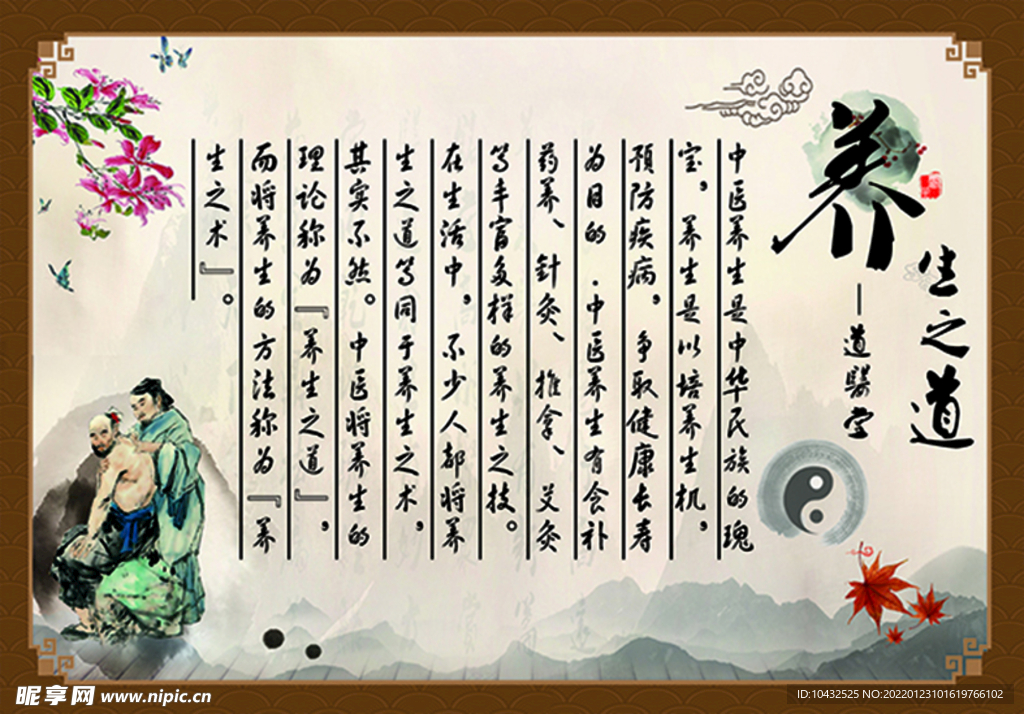 养生之道
—道醫堂
中医养生是中华民族的瑰
宝，养生是以培养生机，
预防疾病，争取健康长寿
为目的．中医养生有食补
药养、针灸、推拿、艾灸
等丰富多样的养生之技。
在生活中，不少人都将养
生之道等同于养生之术，
其实不然。中医将养生的
理论称为『养生之道』，
而将养生的方法称为『养
生之术』。
昵享网 www.nipic.cn
ID:10432525 NO:20220123101619766102